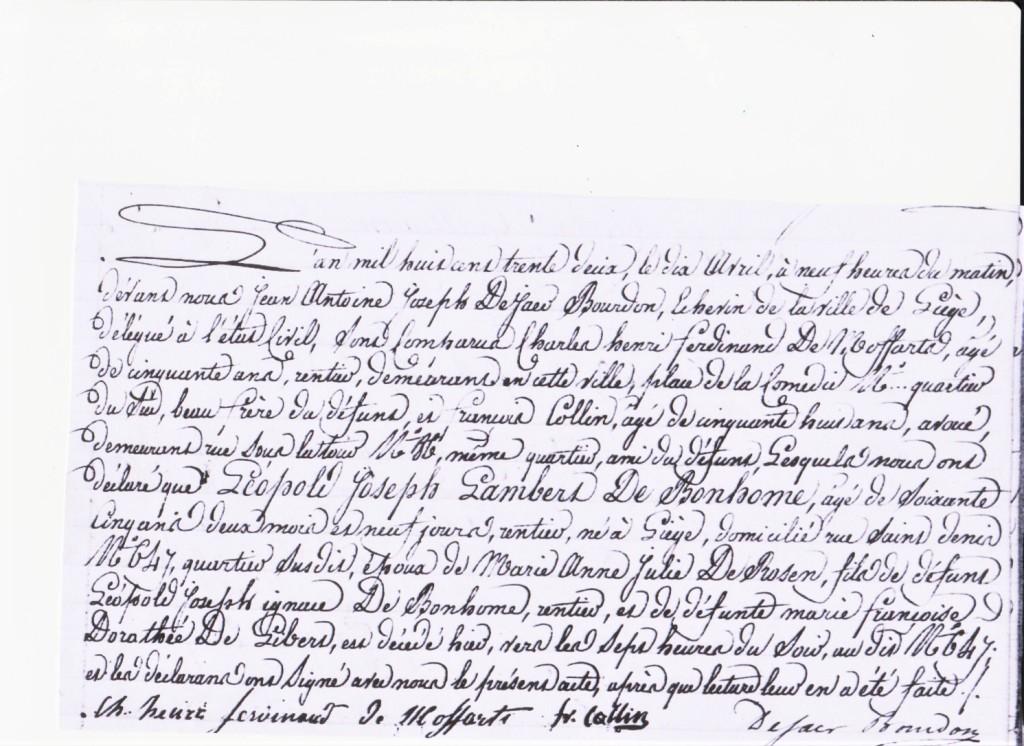 L'an mil huit cent trente deux, le dix Avril, à neuf heures du matin,
devant nous Jean Antoine Joseph DeJaer Bourdon, Echevin de la ville de Liège,
délégué à l'état Civil, sont comparus Charles henri ferdinand De Moffarts, âgé
de cinquante ans, rentier, demeurant en cette ville, place de la Comedie N°... quartier
du Sud, beau frère du défunt et françois Collin, âgé de cinquante huit ans, avoué,
demeurant rüe Sous la tour N° même quartier, ami du défunt, Lesquels nous ont
déclaré que Léopold Joseph Lambert De Bonhome, âgé de Soixante
cinq ans deux mois et neuf jours, rentier, né à Liège, domicilié rue Saint denis
N° 647, quartier Susdit, Epoux de Marie Anne Julie De Rosen, fils de défunt
Léopold Joseph ignace De Bonhome, rentier, et de défunte marie françoise
Dorothée De Libert, est décédé hier, vers les Sept heures du Soir, au dit N° 647.
et les déclarans ont Signé avec nous le présent acte, après que lecture leur en a été faite ./.
Ch. henri ferdinand de Moffarts fr. Collin DeJaer Bourdon